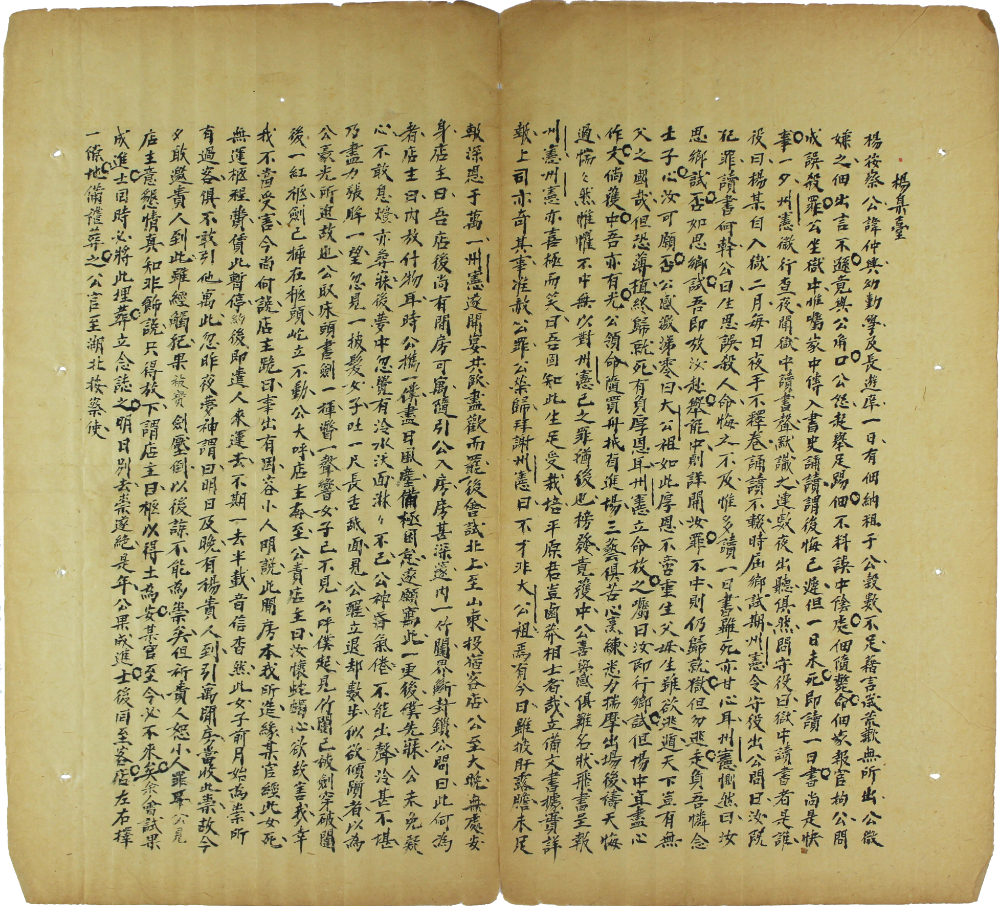 楊集臺
楊按察公諱仲興幼勤學及長遊庠一日有佃納租子公穀數不足藉言歲歉無所出公微
嫌之佃出言不遜竟與公角口公忿起舉足踢佃不料誤中陰處佃隨斃命佃家報官拘公問
成誤殺罪公坐獄中惟囑家中傳入書史誦讀謂後悔已遲但一日未死即讀一日書尚是快
事一夕州憲微行查夜聞獄中讀書聲默識之連數夜出聽俱然問守役曰獄中讀書者是誰
役曰楊某自入獄二月每日夜手不釋卷誦讀不輟時屆鄉試期州憲令守役出公問曰汝既
犯罪讀書何幹公曰生思誤殺人命悔之不及惟多讀一日書雖死亦甘心耳州憲惻然曰汝
思鄉試否如思鄉試吾即放汝赴舉能中則詳開汝罪不中則仍歸就獄但勿逃走負吾憐念
士子心汝可願否公感激涕零曰大公祖如此厚恩不啻重生父母生雖欲逃遁天下豈有無
父之國哉但恐薄植終歸就死有負厚恩耳州憲立命放之囑曰汝即行鄉試但場中宜盡心
作文倘獲中吾亦有光公領命隨買舟抵省進場三藝俱苦心烹練悉力揣摩出場後禱天悔
過惴々然惟懼不中無以對州憲已之罪猶後也榜發竟獲中公喜與感俱難名狀飛書呈報
州憲州憲亦喜極而笑曰吾固知此生足受栽培平原君豈鹵莽相士者哉立備文書據實詳
報上司亦奇其事准赦公罪公榮歸拜謝州憲曰不才非大公祖焉有今日雖披肝露膽未足
報深恩于萬一州憲遂開宴共飲盡歡而罷後會試北上至山東投宿客店公至大晚無處安
身店主曰吾店後尚有閒房可寓隨引公入房房甚深邃內一竹闌界斷封鎖公問曰此何為
者店主曰內放什物耳時公攜一僕盡日風塵備極困怠遂願寓此一更後僕先寐公未免疑
心不敢息燈亦尋寐後夢中忽覺有冷水沃面淋々不已公神昏氣倦不能出聲冷甚不堪
乃盡力張眸一望忽見一披髮女子吐一尺長舌舐面見公醒立退却數步似欲傾躓者以為
公豪光所逼故也公取床頭書劍一揮瞥一聲響女子已不見公呼僕起見竹闌已被劍穿破闌
後一紅柩劍已插在柩頭屹立不動公大呼店主奔至公責店主曰汝懷蛇蝎心欲故害我幸
我不當受害今尚何說店主跪曰事出有因容小人明說此閒房本我所造緣某官經此女死
無運柩程費賃此暫停約後即遣人來運去不期一去半載音信杳然此女子前月始為祟所
有過客俱不敢引他寓此忽昨夜夢神謂曰明日及晚有楊貴人到引寓閒房當收此祟故今
夕敢邀貴人到此雖經觸犯果被貴人劍壓倒以後諒不能為祟矣但祈貴人恕小人罪耳公見
店主意懇情真知非飾說只得放下謂店主曰柩以得土為安某官至今必不來矣余會試果
成進士回時必將此埋葬立念誌之明日別去祟遂絕是年公果成進士後回至客店左右擇
一僚地備禮葬之公言至湖北按察使